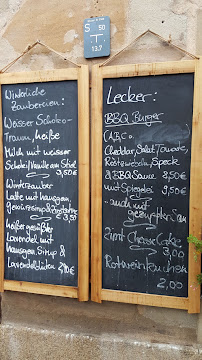 S 50
T
13,7
Winterliche
Zaubereien:
Wasser Schoko-
Traum, heiße
Milch mit weisser
Schoki/Vanille am Stiel
3,50€
Winterzauber
Latte mit hausgem.
Gewürzsirup & Zimtsahne
3,50€
heißer gesüßter
Lavendel mit
hausgem. Sirup &
Lavendelblüten 2,70€
Lecker:
BBQ Burger
Cheddar, Salat, Tomate,
Röstzwiebeln, Speck
& BBQ Sauce 8,50€
mit Spiegelei 9,50€
- auch mit
Zimt Cheese Cake
3,00
Rotweinkuchen
2,00